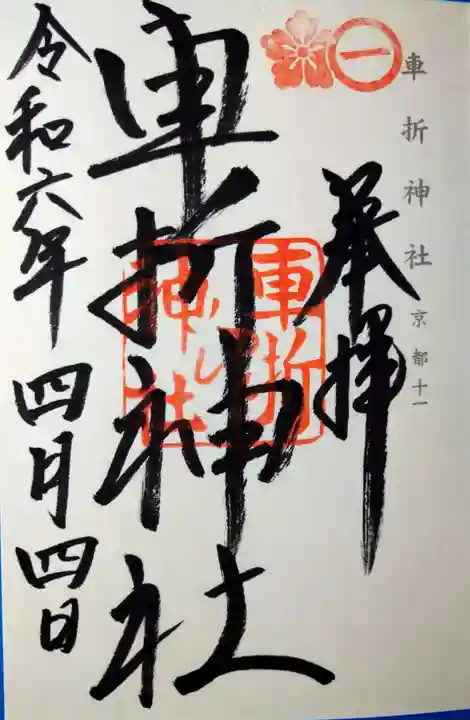 車折神社 京都十一
一
奉拝
車折神社
車折
神社
令和六年 四月四日